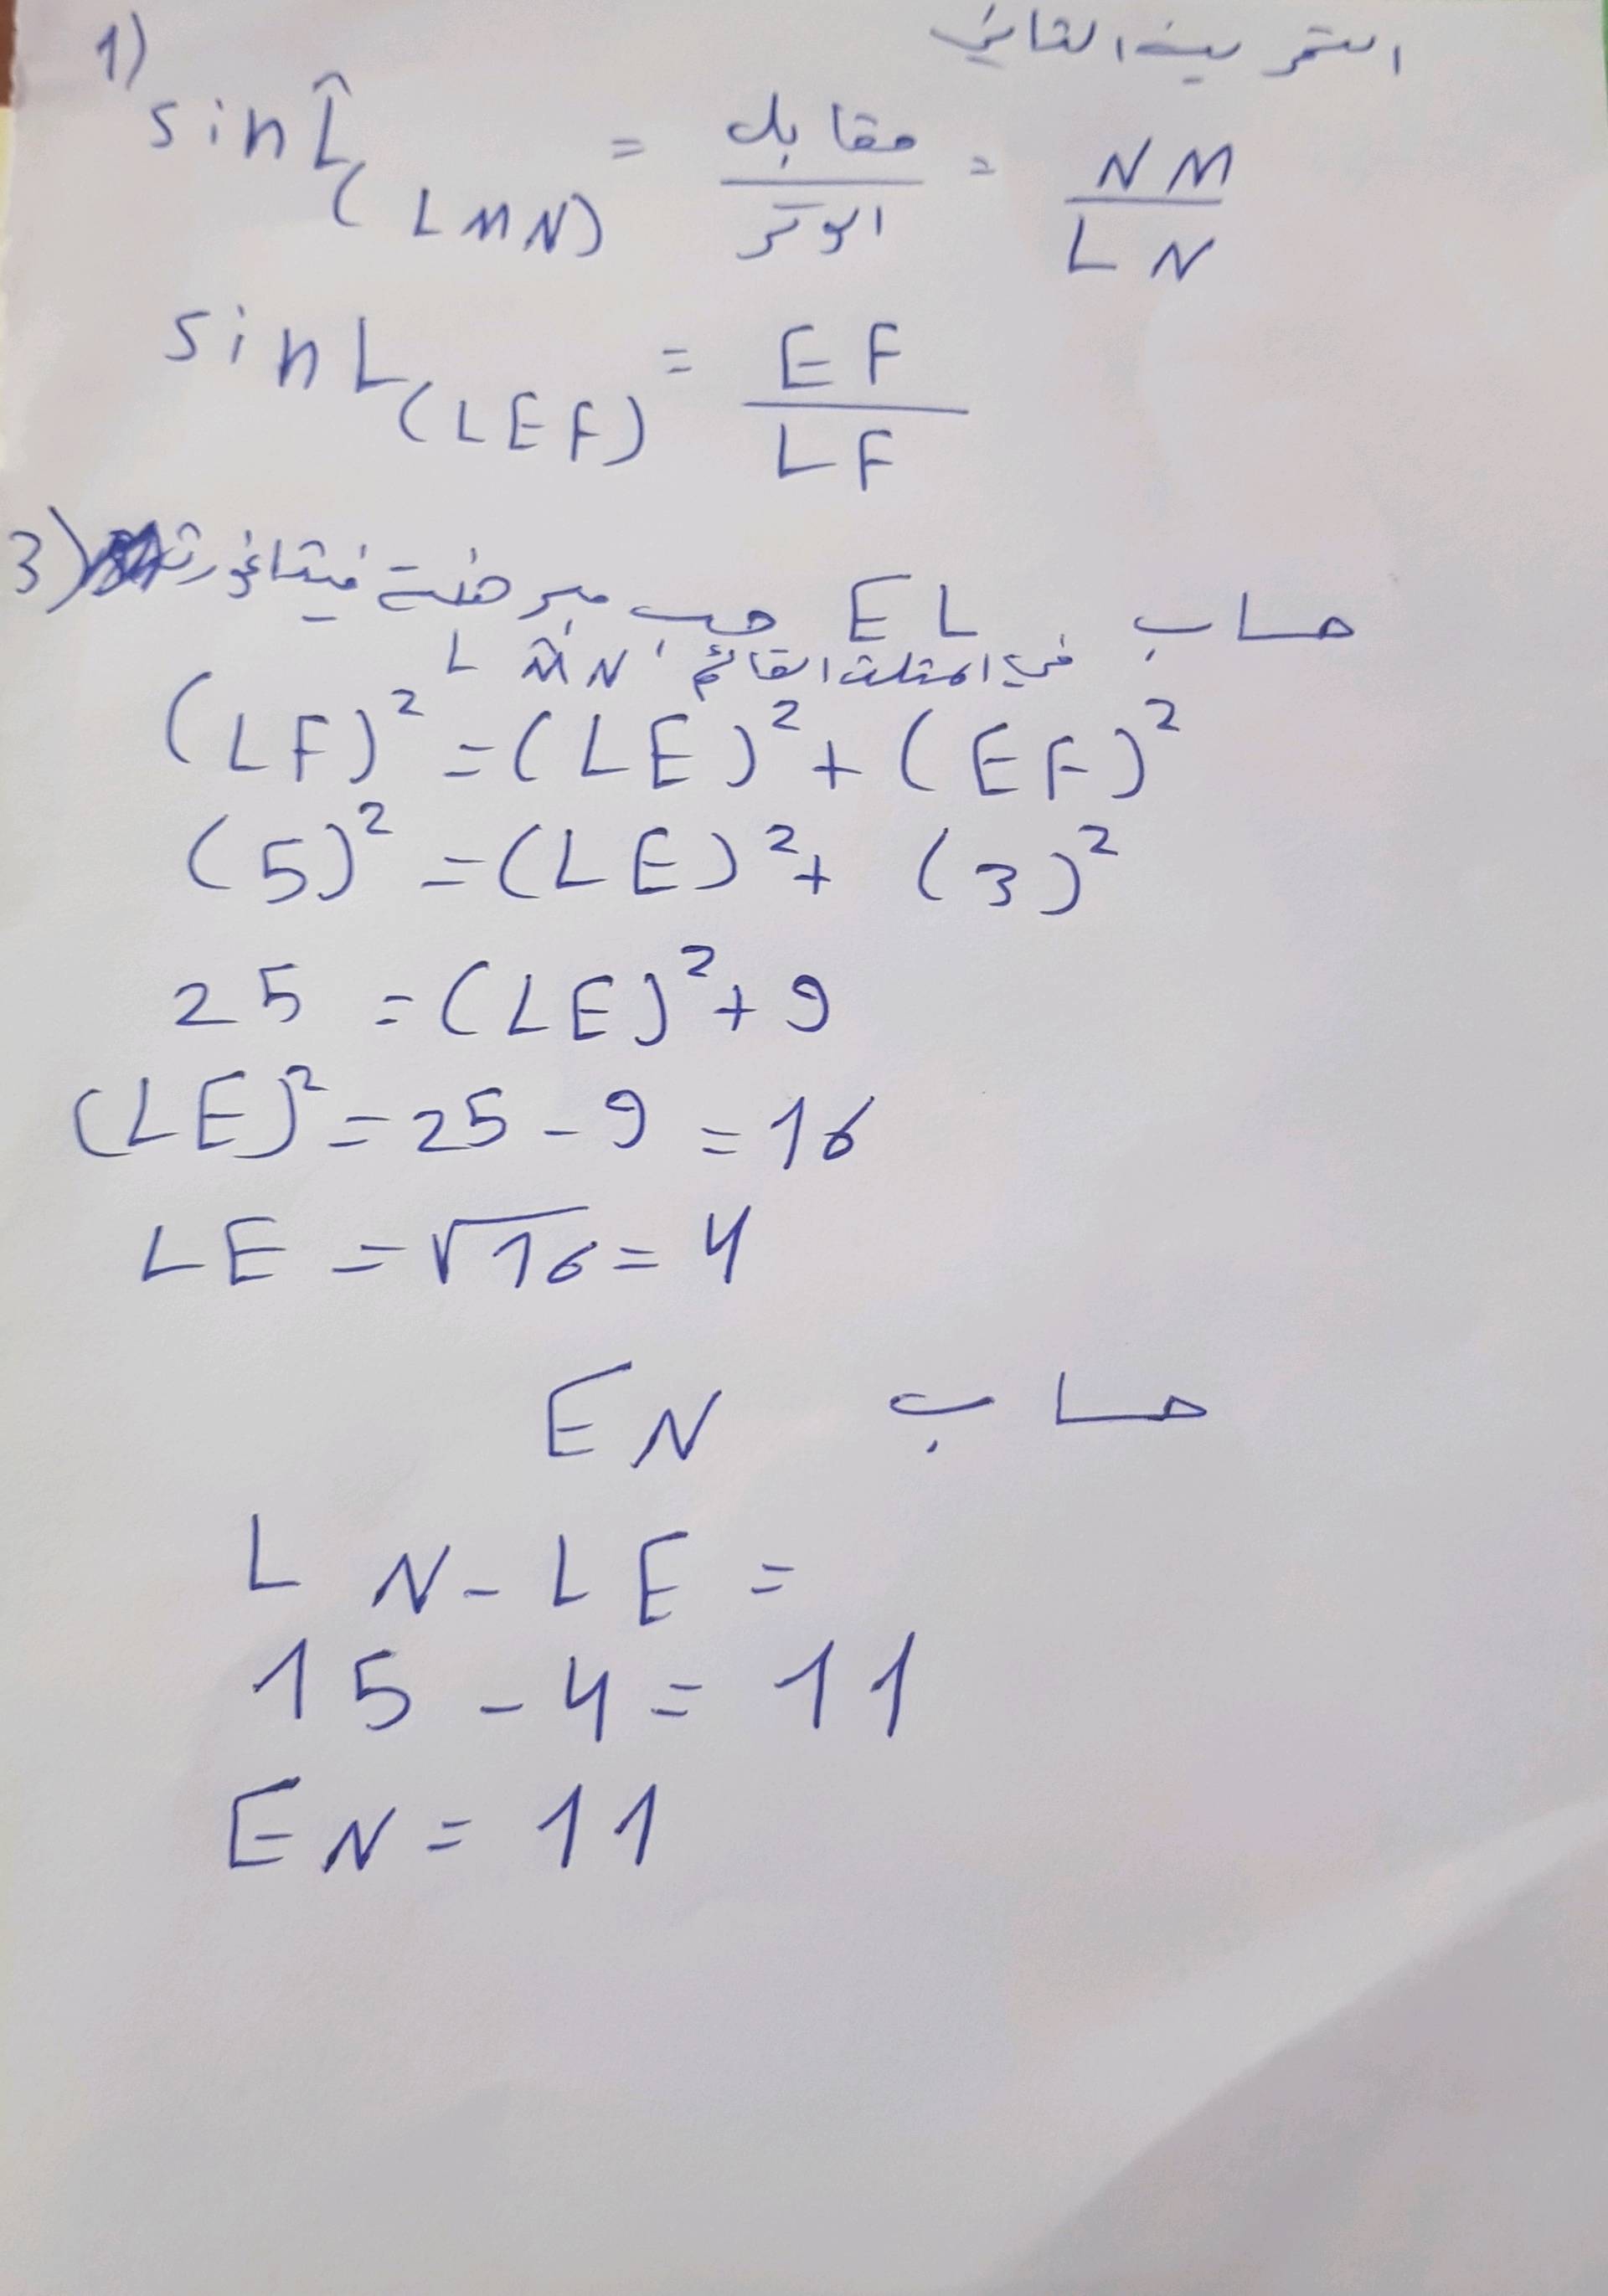 التمرين الثاني
1)
sin L̂(LMN) = مقابل / الوتر = NM / LN
sin L(LEF) = EF / LF
3) حساب EL حسب مبرهنة فيتاغورت
في المثلث القائم LMN
(LF)² = (LE)² + (EF)²
(5)² = (LE)² + (3)²
25 = (LE)² + 9
(LE)² = 25 - 9 = 16
LE = √16 = 4
حساب EN
LN - LE =
15 - 4 = 11
EN = 11